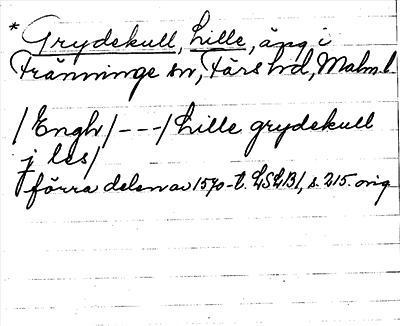 * Grydekull, Lille, äng i
Tranninge sn, Färs hd, Malm. l.
/Engh/---/Lille grydekull
j les/
förra delen av 1570-t. LSLB1, s. 215. orig